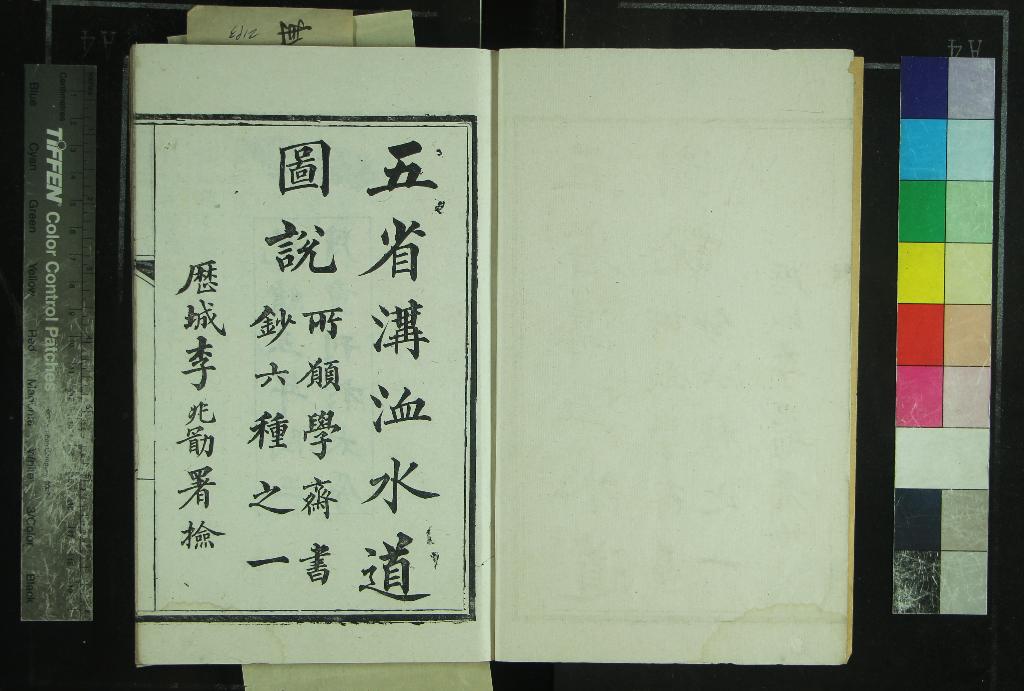 五省溝洫水道
圖說
所願學齋書
鈔六種之一
歷城李兆勖署檢
TIFFEN Color Control Patches
Centimetres
Blue
Cyan
Green
Yellow
Red
Magenta
White
3/Color
Black
A4
A4
2193